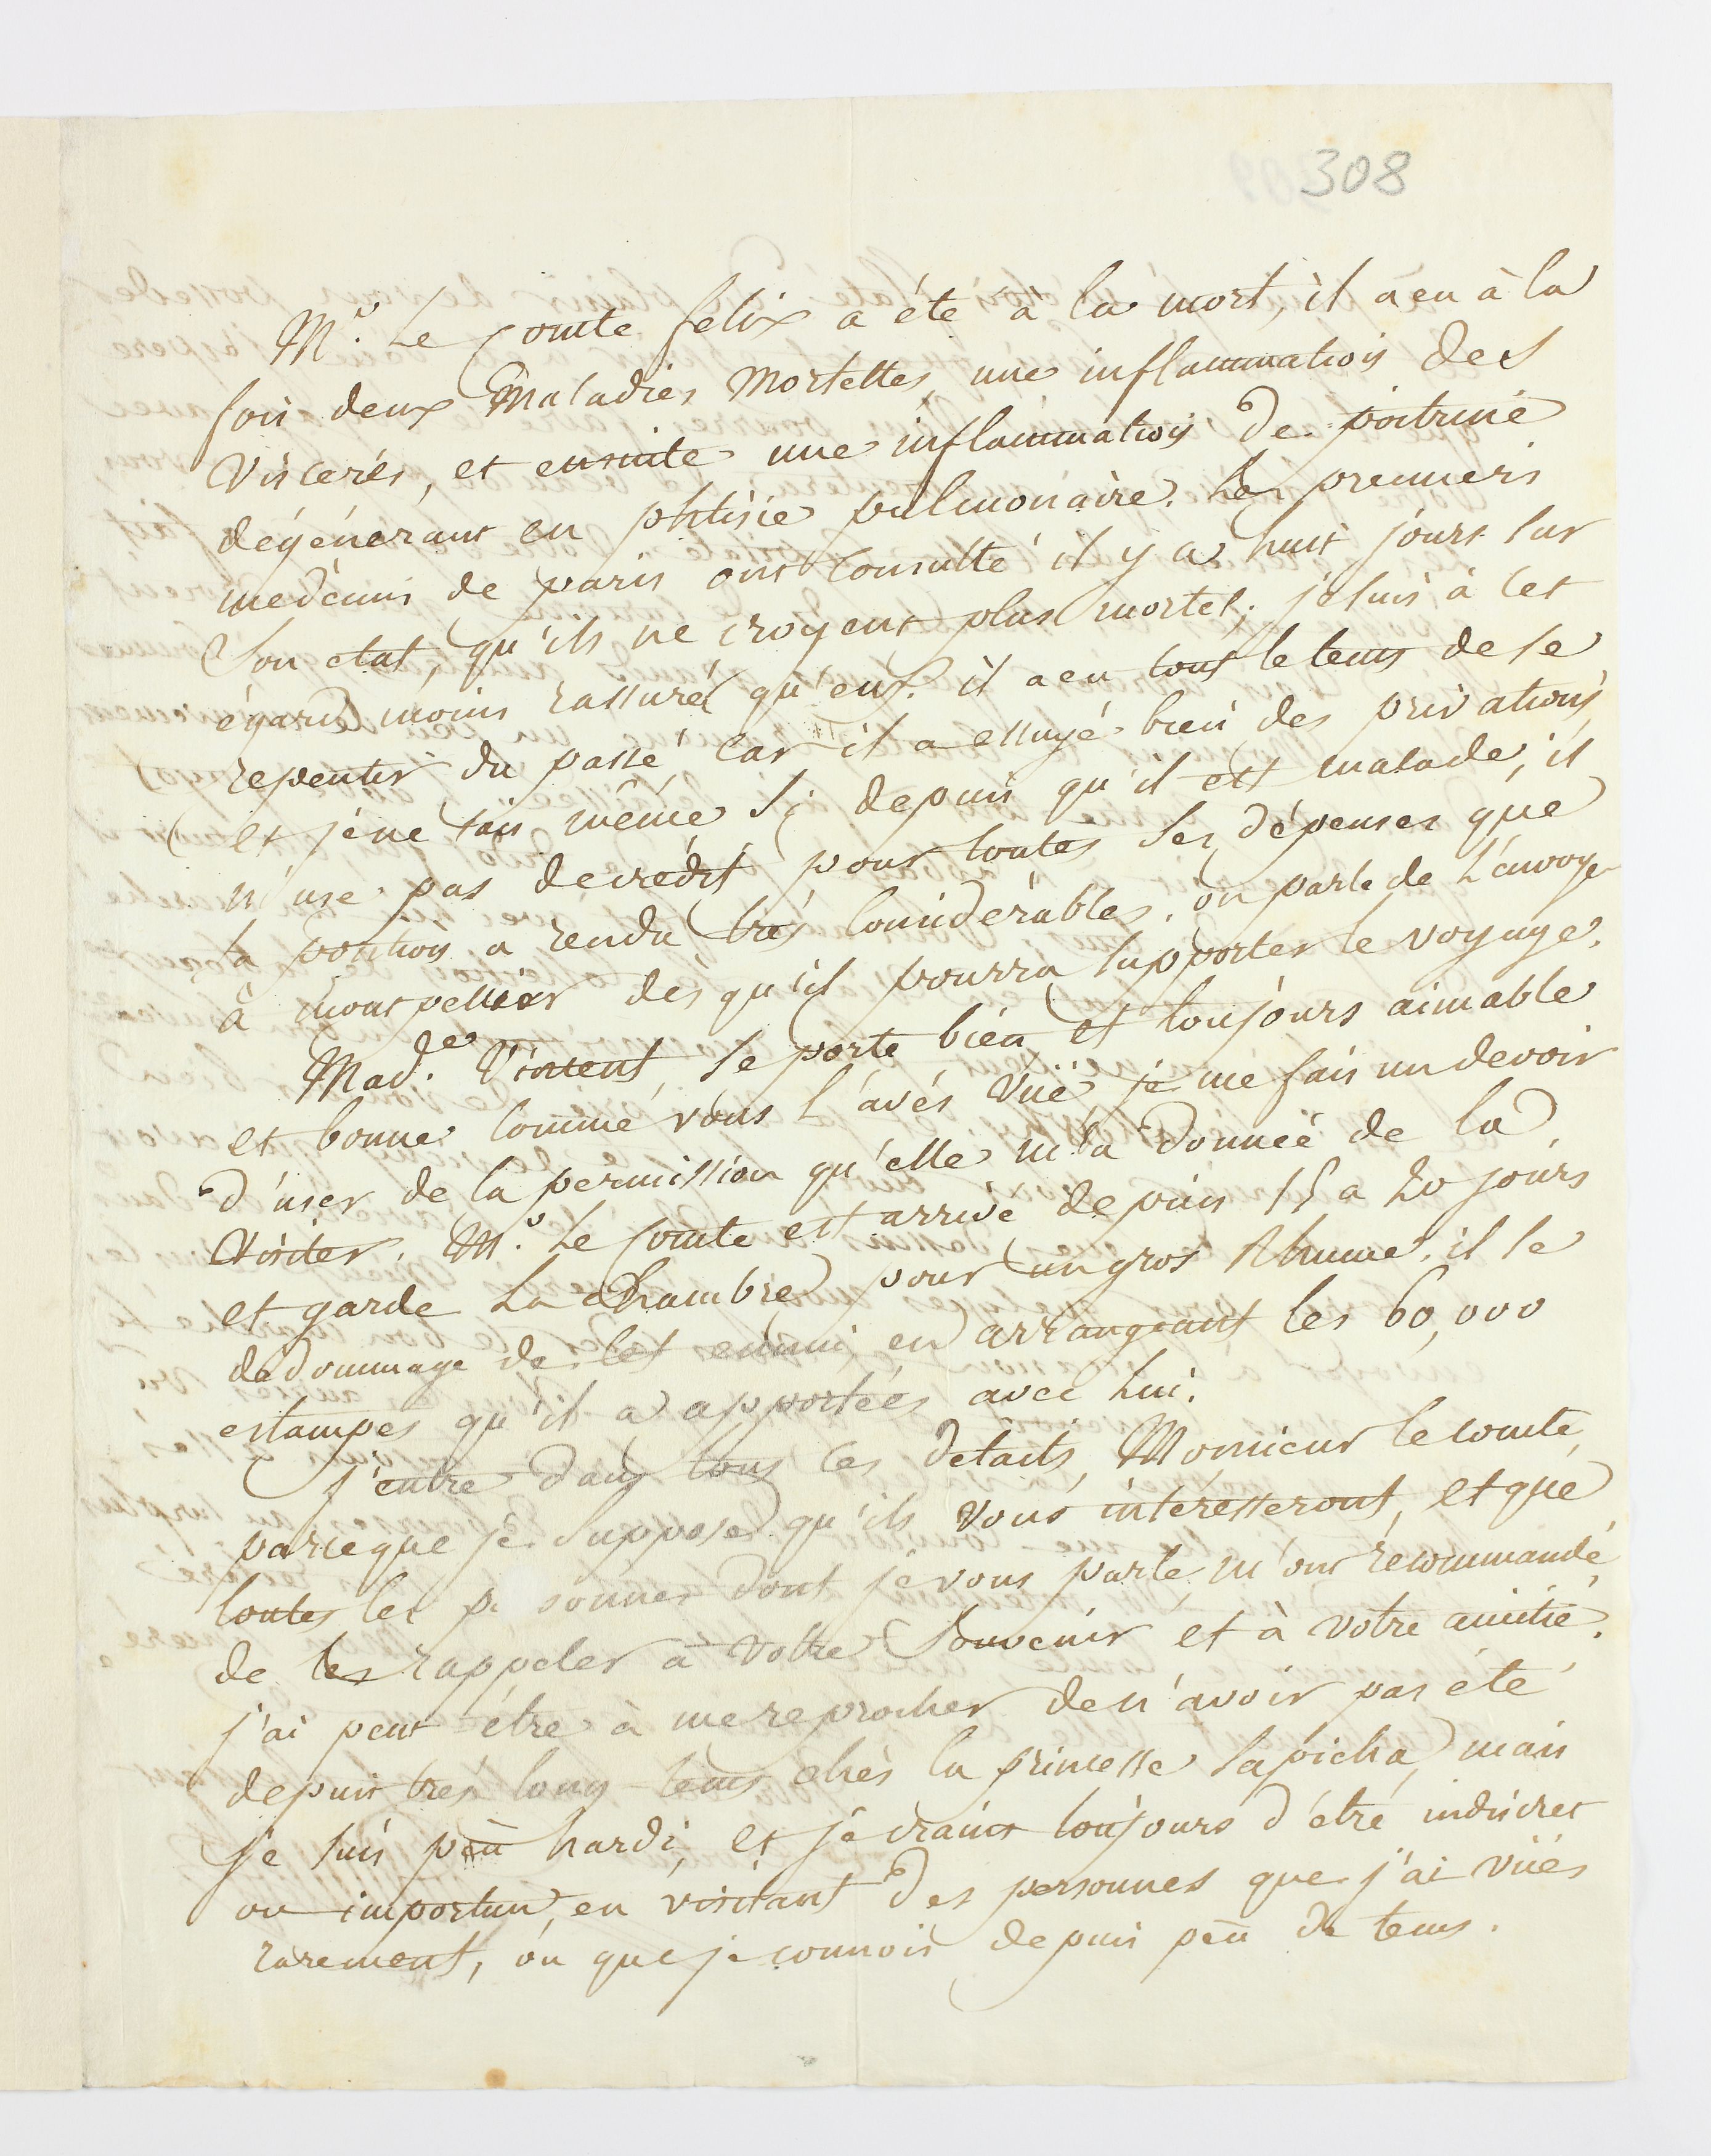 308
Mr. Le Comte felix a été à la mort, il a eu à la
fois deux Maladies Mortelles, une inflammation des
Viscerés, et ensuite une inflammation de poitrine
dégénerant en phtisie pulmonaire. Les premiers
medecins de paris ont Consulté il y a huit jours sur
Son etat, qu'ils ne croyent plus mortel; je suis à cet
égard moins rassuré qu'eux. il a eu tout le tems de se
repentir du passé car il a essuyé bien des privations,
et je ne sais même si depuis qu'il est malade, il
n'use pas de credit pour toutes les dépenses que
sa position a rendu très Considérables. on parle de L'envoyer
à montpellier dès qu'il pourra supporter le voyage.
Made. Vincent, se porte bien et toujours aimable
et bonne Comme vous l'avés vüe je me fais un devoir
d'user de la permission qu'elle m'a donnée de la
Visiter. Mr. Le Comte est arrivé depuis 15 a 20 jours
et garde La Chambre pour un gros Rhume. il se
dedommage de cet ennui en arrangeant les 60,000
estampes qu'il a apportées avec Lui.
J'entre dans tous ces détails, Monsieur le comte,
parceque je Suppose qu'ils vous intéresseront, et que
toutes les pe sonnes dont je vous parle, m'ont recommandé
de les rappeler à votre Souvenir et à votre amitié.
j'ai peut être à me reprocher de n'avoir pas été
depuis très long-tems chés la princesse Sapieha, mais
je suis peu hardi, et je crains toujours d'être indiscret
ou importun, en visitant des personnes que j'ai vües
rarement, ou que je connois depuis peu de tems.